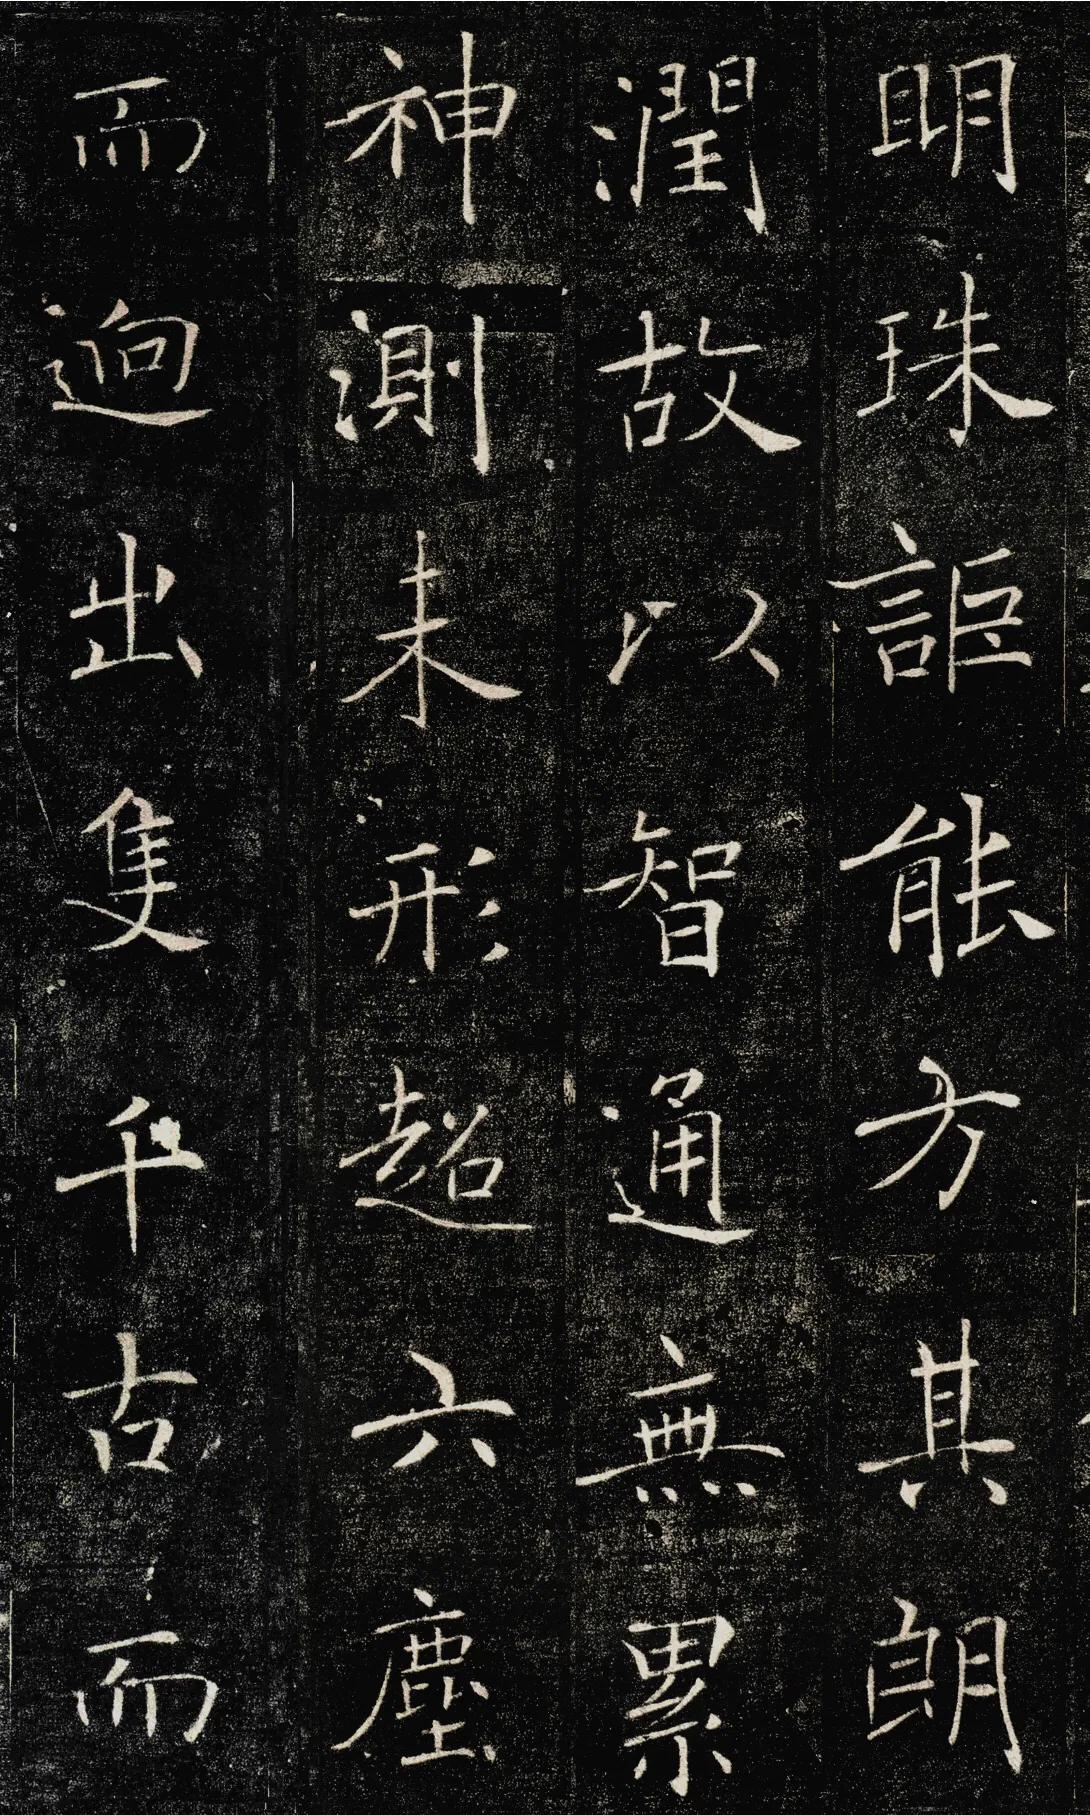 明珠詎能方其朗
潤故以智通無累
神測未形超六塵
而逈出隻千古而